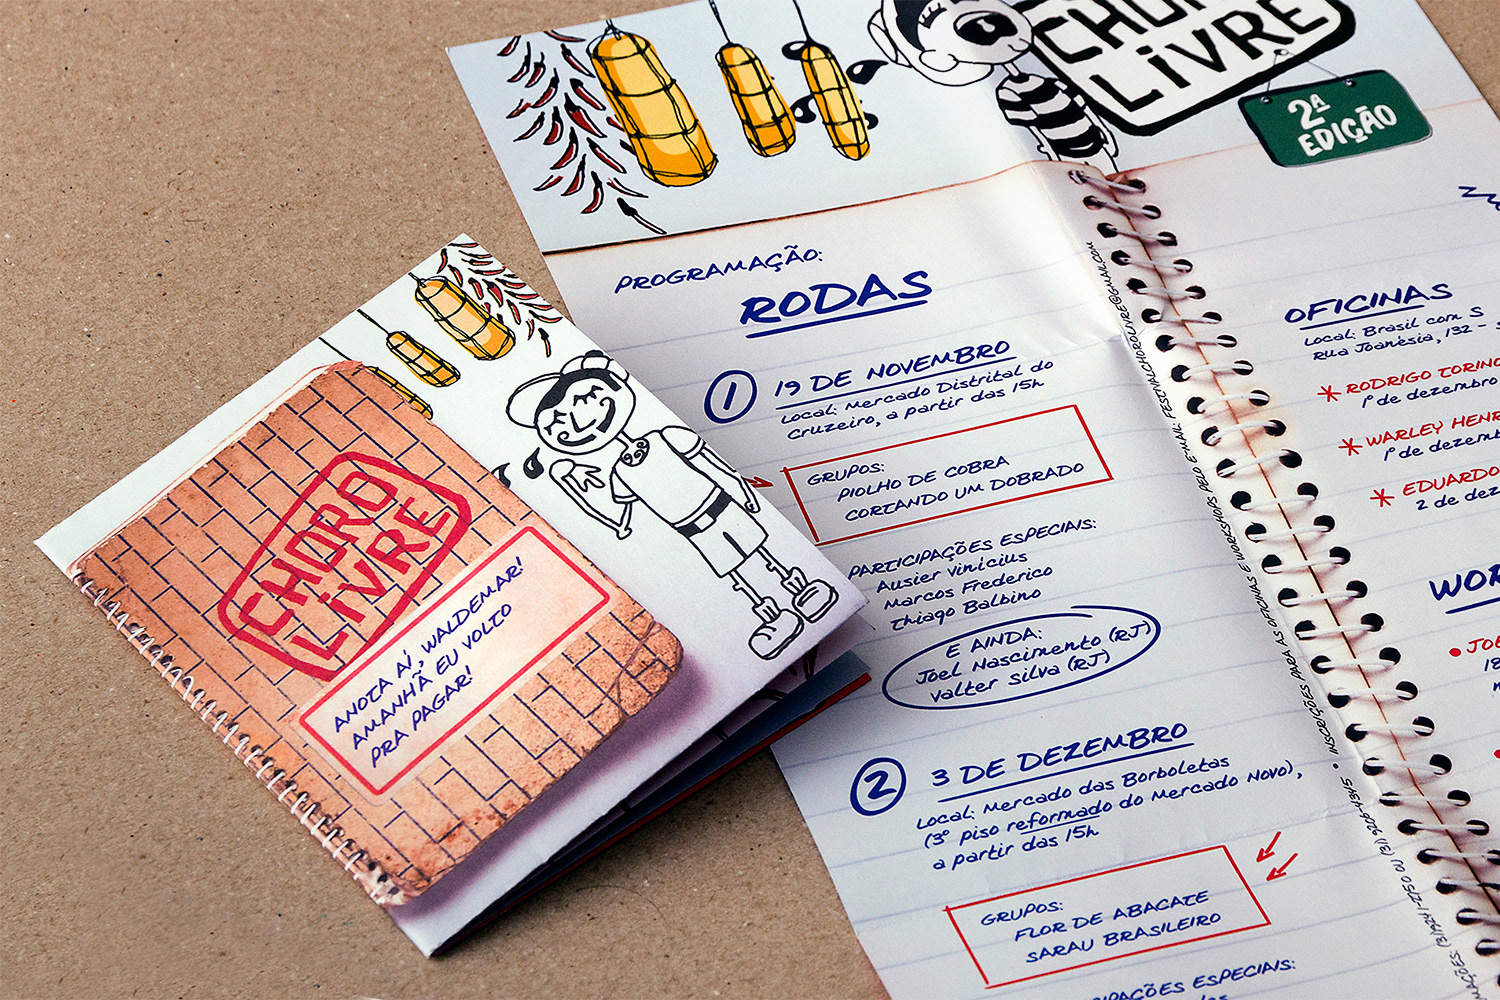 CHORO
LIVRE
2ª
EDIÇÃO
PROGRAMAÇÃO:
RODAS
1 19 DE NOVEMBRO
Local: Mercado Distrital do
Cruzeiro, a partir das 15h
GRUPOS:
PIOLHO DE COBRA
CORTANDO UM DOBRADO
PARTICIPAÇÕES ESPECIAIS:
Ausier Vinícius
Marcos Frederico
Thiago Balbino
E AINDA:
Joel Nascimento (RJ)
Valter Silva (RJ)
2 3 DE DEZEMBRO
Local: Mercado das Borboletas
(3º piso reformado do Mercado Novo),
a partir das 15h
GRUPOS:
FLOR DE ABACATE
SARAU BRASILEIRO
ESPECIAIS:
INSCRIÇÕES PARA AS OFICINAS E WORKSHOPS PELO E-MAIL: FESTIVALCHOROLIVRE@GMAIL.COM
OFICINAS
Local: Brasil com S
Rua Joanésia, 132 -
* RODRIGO TORINO
1º de dezembro
* WARLEY HENR
1º de dezemb
* EDUARDO
2 de dez
WOR
CHORO
LIVRE
ANOTA AÍ, WALDEMAR!
AMANHÃ EU VOLTO
PRA PAGAR!